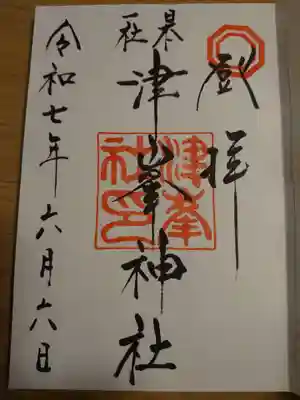 登拝
津峯神社
津峯
社印
令和七年六月六日